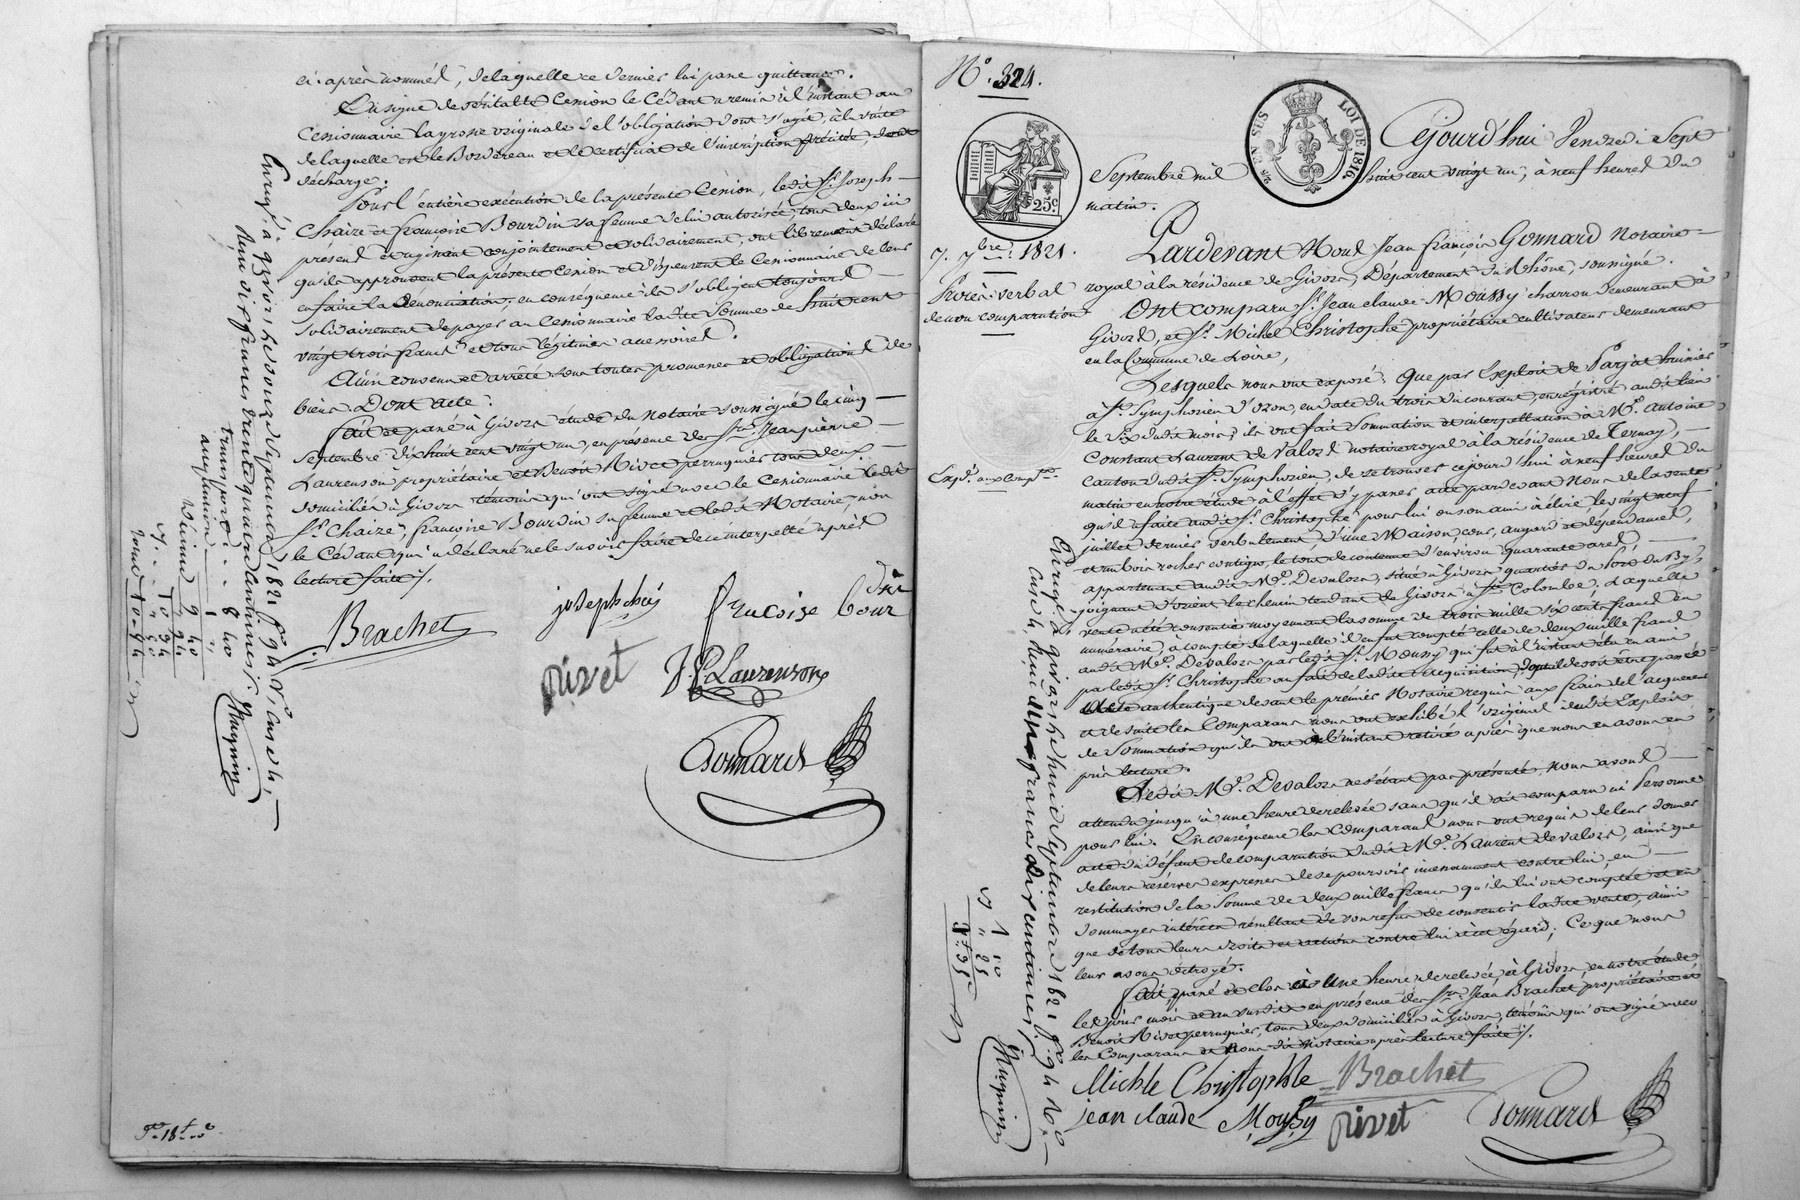 ci-après nommés, de laquelle ce dernier lui passe quittance.
En signe de véritable cession le Cédant a remis à l'instant au
Cessionnaire la grosse originale de l'obligation dont s'agit, à la suite
de laquelle est le Bordereau et le certificat de l'inscription précitée, dont
décharge.
Pour l'entière exécution de la présente Cession, ledit Sr. Joseph
Chaize et françoise Bourdin sa femme de lui autorisée, tous deux ici
présens et agissant conjointement et solidairement, ont librement déclaré
qu'ils approuvent la présente Cession et dispensent le Cessionnaire de leur
en faire la dénonciation; en conséquence ils s'obligent toujours
solidairement de payer au Cessionnaire ladite Somme de huit cent
vingt trois francs et tous légitimes accessoires.
Ainsi convenu et arrêté sous toutes promesses et obligations de
biens. Dont acte.
fait et passé à Givors étude du Notaire soussigné le cinq
Septembre dix huit cent vingt un, en présence des Srs. Jean pierre
Laurenson propriétaire et Benoit Rivet perruquier tous deux
domiciliés à Givors témoins qui ont signé avec le Cessionnaire ledit
Sr. Chaize, françoise Bourdin sa femme et ledit Notaire, non
le Cédant qui a déclaré ne le savoir faire de ce interpellé après
lecture faite ./.
Brachet
joseph chais
françoise bour
din
rivet
J. P. Laurenson
Gonnard
Enregé. à givors, le douze septembre 1821 fo. 94 Vo. case 4,
Reçu dix francs trente quatre centimes.
transport . . 8 40
quittance 1 "
Dixième 9 40
94
10 34
Fo. 18
No. 324.
EN SUS
LOI DE 1816
25c
Cejourd'hui Vendredi Sept
Septembre mil huit cent vingt un, à neuf heures du
matin.
7. 7bre. 1821.
Procès verbal
de non comparution
Pardevant Nous Jean françois Gonnard Notaire
royal à la résidence de Givors, Département du Rhône, soussigné.
Ont comparu Sr. Jean claude Moussy charron demeurant à
Givors, et Sr. Michel Christophe propriétaire cultivateur demeurant
en la Commune de Loire,
Lesquels nous ont exposé: Que par Exploit de Parjat huissier
à St. Symphorien d'ozon, en date du trois du courant, enregistré audit lieu
le Six dudit mois; ils ont fait Sommation et interpellation à Me. Antoine
Constant Laurent de Valors notaire royal à la résidence de Ternay,
Canton dudit St. Symphorien, de se trouver cejourd'hui à neuf heures du
matin en notre étude à l'effet d'y passer acte pardevant Nous de la vente
qu'il a faite audit Sr. Christophe pour lui ou son ami à élire, le vingt neuf
juillet dernier verbalement, d'une Maison, cour, angard et dépendances,
et un bois rochers contigu, le tout de contenue d'environ quarante ares,
appartenant audit Me. Devalors, situé à Givors quartier du
joignant d'orient le chemin tendant de Givors à Ste. Colombe, Laquelle
vente a été consentie moyennant la somme de trois mille six cents francs en
numéraire, à compte de laquelle il en fut compté celle de deux mille francs
audit Me. Devalors par ledit Sr. Moussy qui fut à l'instant élu en ami
par ledit Sr. Christophe au fait de ladite acquisition, dont il devoit être passé
Acte authentique devant le premier Notaire requis aux frais de l'acquereur
et de suite les Comparans nous ont exhibé l'original dudit Exploit
de Sommation qu'ils ont à l'instant retiré après que nous en avons eu
pris lecture.
Exp. aux comp.
Ledit Me. Devalors ne s'étant pas présenté, Nous avons
attendu jusqu'à une heure de relevée sans qu'il ait comparu ni personne
pour lui. En conséquence les Comparans nous ont requis de leur donner
acte du défaut de comparution dudit Me. Laurent de valors, ainsi que
de leurs réserves expresses de se pourvoir incessamment contre lui, en
restitution de la Somme de deux mille francs qu'ils lui ont comptée et en
dommages intérêts résultant de son refus de consentir ladite vente, ainsi
que de tous leurs droits et actions contre lui à cet égard; Ce que nous
leur avons octroyé.
fait, passé et clos à Une heure de relevée, à Givors, en notre étude
les jour, mois et an susdits en présence des Srs. Jean Brachet propriétaire et
Benoit Rivet perruquier, tous deux domiciliés à Givors, témoins qui ont signé avec
les Comparans et Nous dit Notaire après lecture faite ./.
Michle Christophle
Brachet
jean claude Moussy
rivet
Gonnard
Enregé. à givors, le huit septembre 1821 fo. 94 Vo.
case 4, Reçu un franc dix centimes.
1 10
" 25
1f. 35c